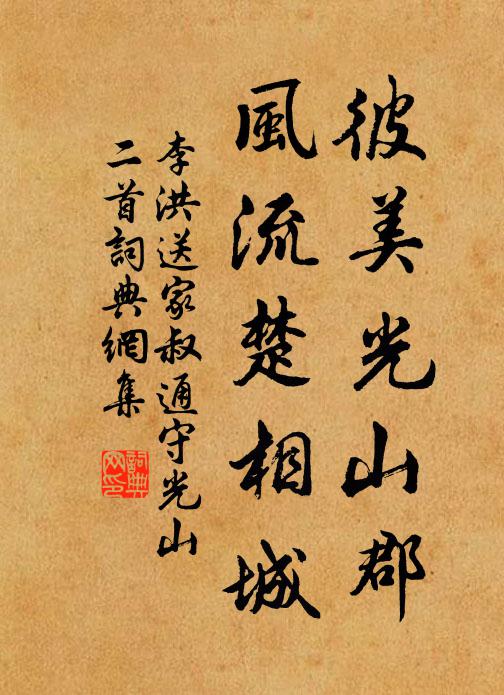 彼美光山郡
風流楚相城
李洪送家叔通守光山
二首詞典網集
詞典
网印